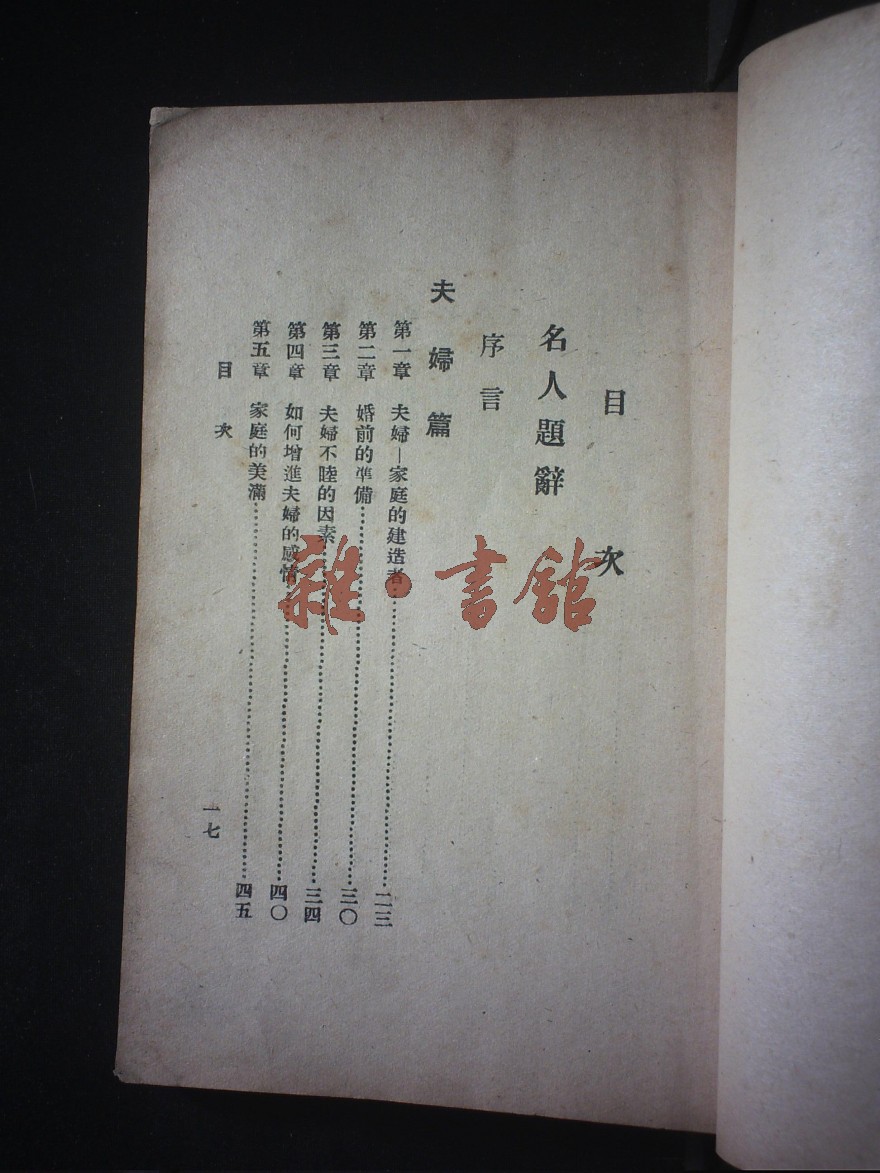 目次
名人題辭
序言
夫婦篇
第一章 夫婦—家庭的建造者……二三
第二章 婚前的準備……三〇
第三章 夫婦不睦的因素……三四
第四章 如何增進夫婦的感情……四〇
第五章 家庭的美滿……四五
目次
一七
雜·書館